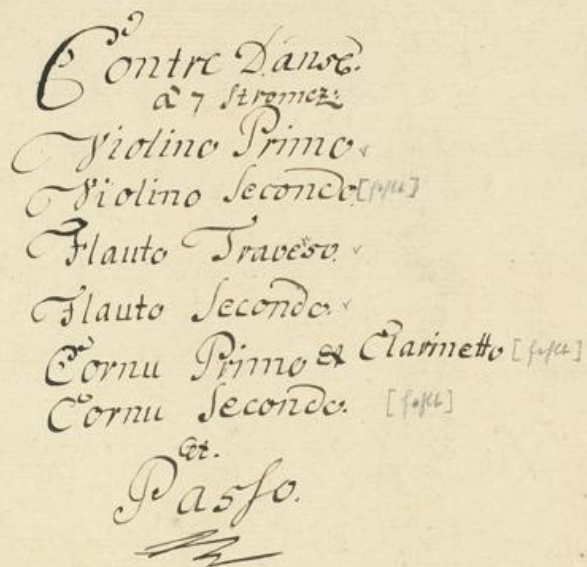 Contre Danse.
à 7 Stromez:
Violino Primo
Violino Secondo [fehlt]
Flauto Traveso.
Flauto Secondo.
Cornu Primo et Clarinetto [fehlt]
Cornu Secondo. [fehlt]
Et.
Basso.